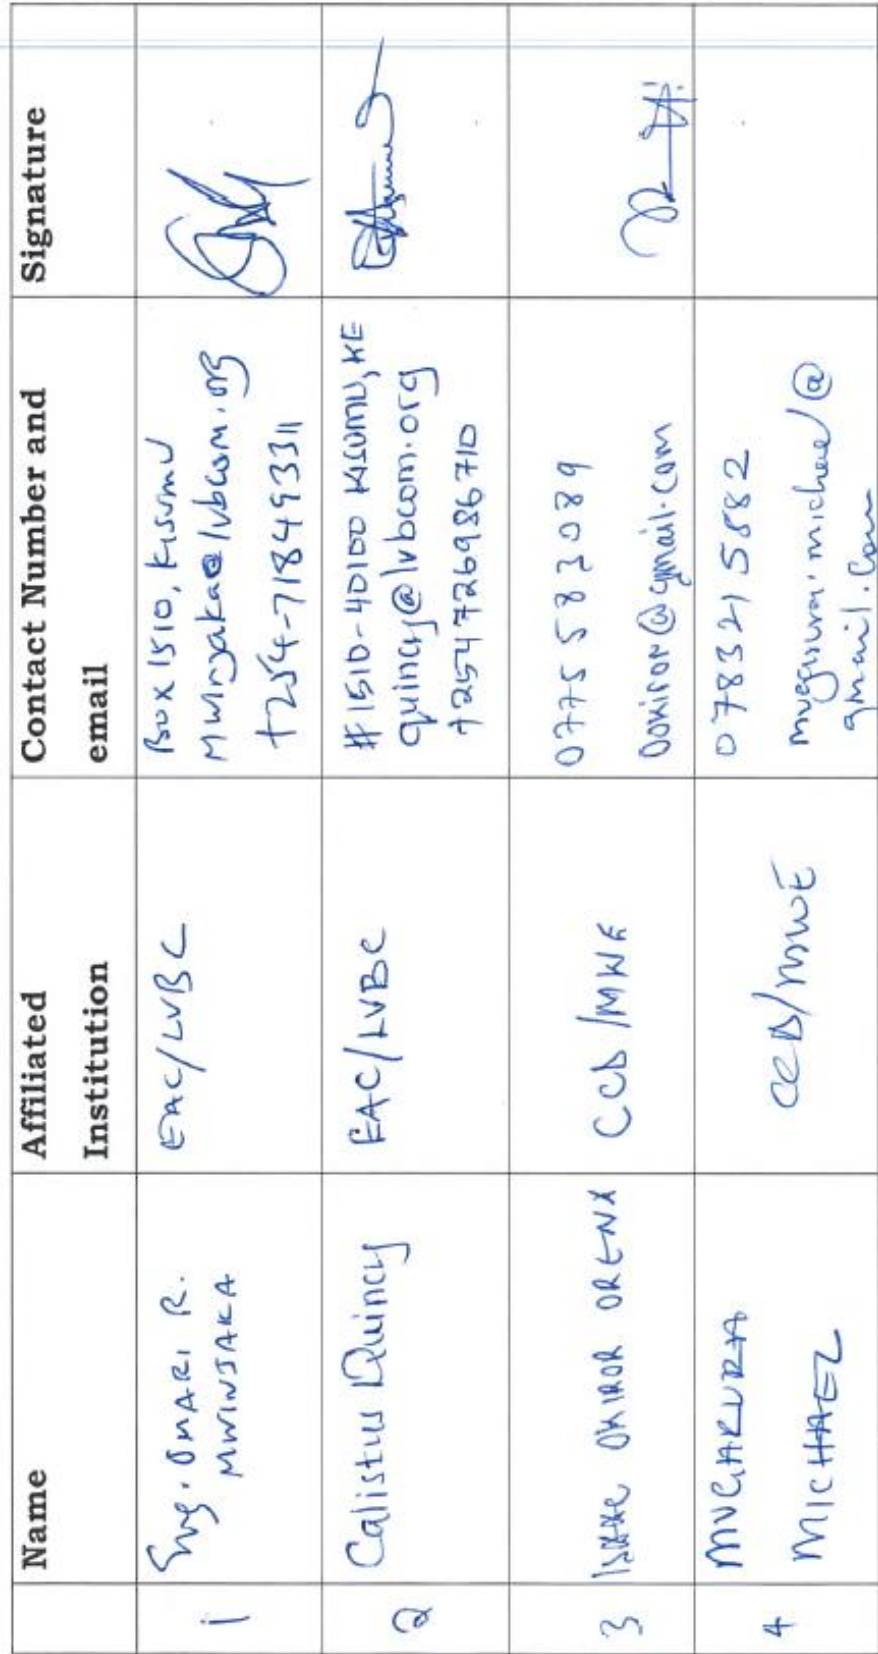 Name
Affiliated
Institution
Contact Number and
email
Signature
1
Eng. OMARI R.
MWINJAKA
EAC/LVBC
Box 1510, Kisumu
Mwinjaka@lvbcom.org
+254-718493311
2
Calistus Quincy
EAC/LVBC
#1510-40100 KISUMU, KE
quincy@lvbcom.org
+254726986710
3
ISAAC OKIROR ORENX
CCD/MWE
0775583089
Ookiror@gmail.com
4
MUGARURA
MICHAEL
CCD/MWE
0783215882
michael@
gmail.com